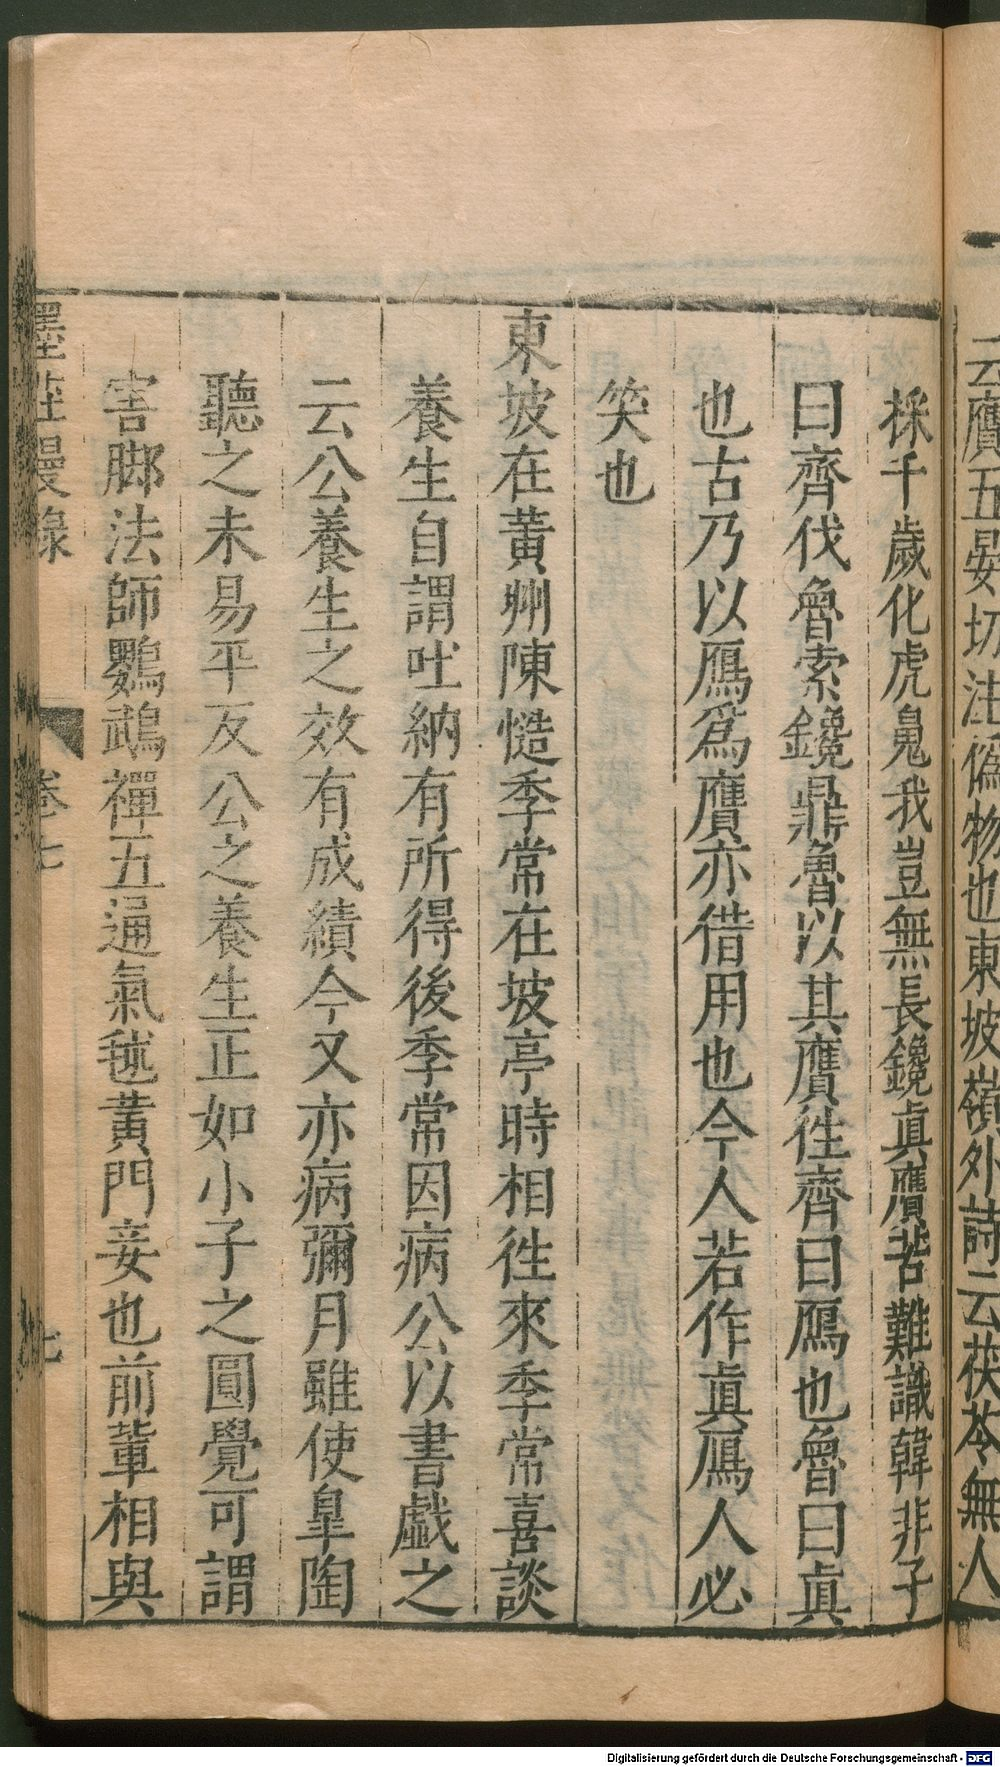 云贗五晏切注僞物也東坡嶺外詩云茯苓無人
採千歲化虎鬼我豈無長鑱眞贗苦難識韓非子
曰齊伐魯索鑱鼎魯以其贗徃齊曰鴈也魯曰眞
也古乃以鴈爲贗亦借用也今人若作眞鴈人必
笑也
東坡在黃州陳慥季常在坡亭時相徃來季常喜談
養生自謂吐納有所得後季常因病公以書戲之
云公養生之效有成績今又亦病彌月雖使臯陶
聽之未易平反公之養生正如小子之圓覺可謂
害脚法師鸚鵡禪五通氣毬黃門妾也前輩相與
墨莊漫錄
卷七
七
Digitalisierung gefördert durch die Deutsche Forschungsgemeinschaft - DFG